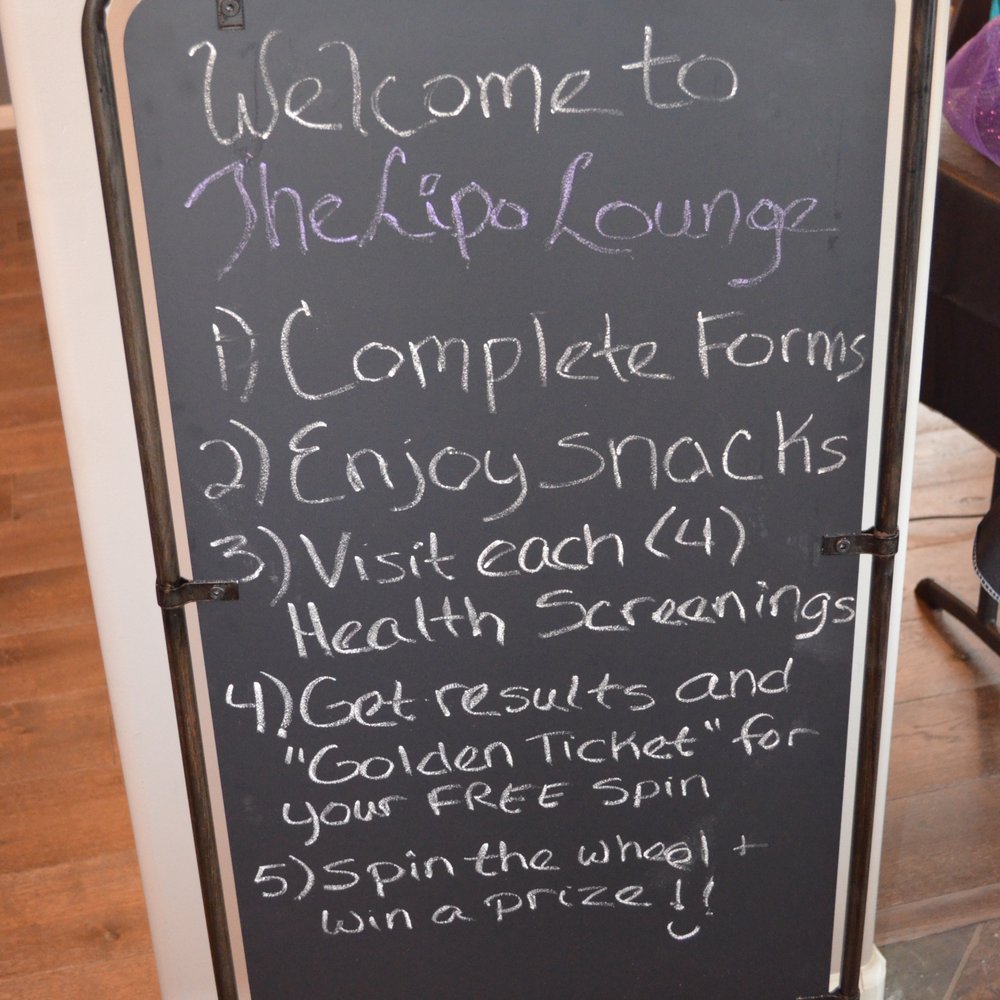 Welcome to
The Lipo Lounge
1) Complete Forms
2) Enjoy snacks
3) Visit each (4)
Health Screenings
4) Get results and
"Golden Ticket" for
your FREE Spin
5) Spin the wheel +
win a prize!!